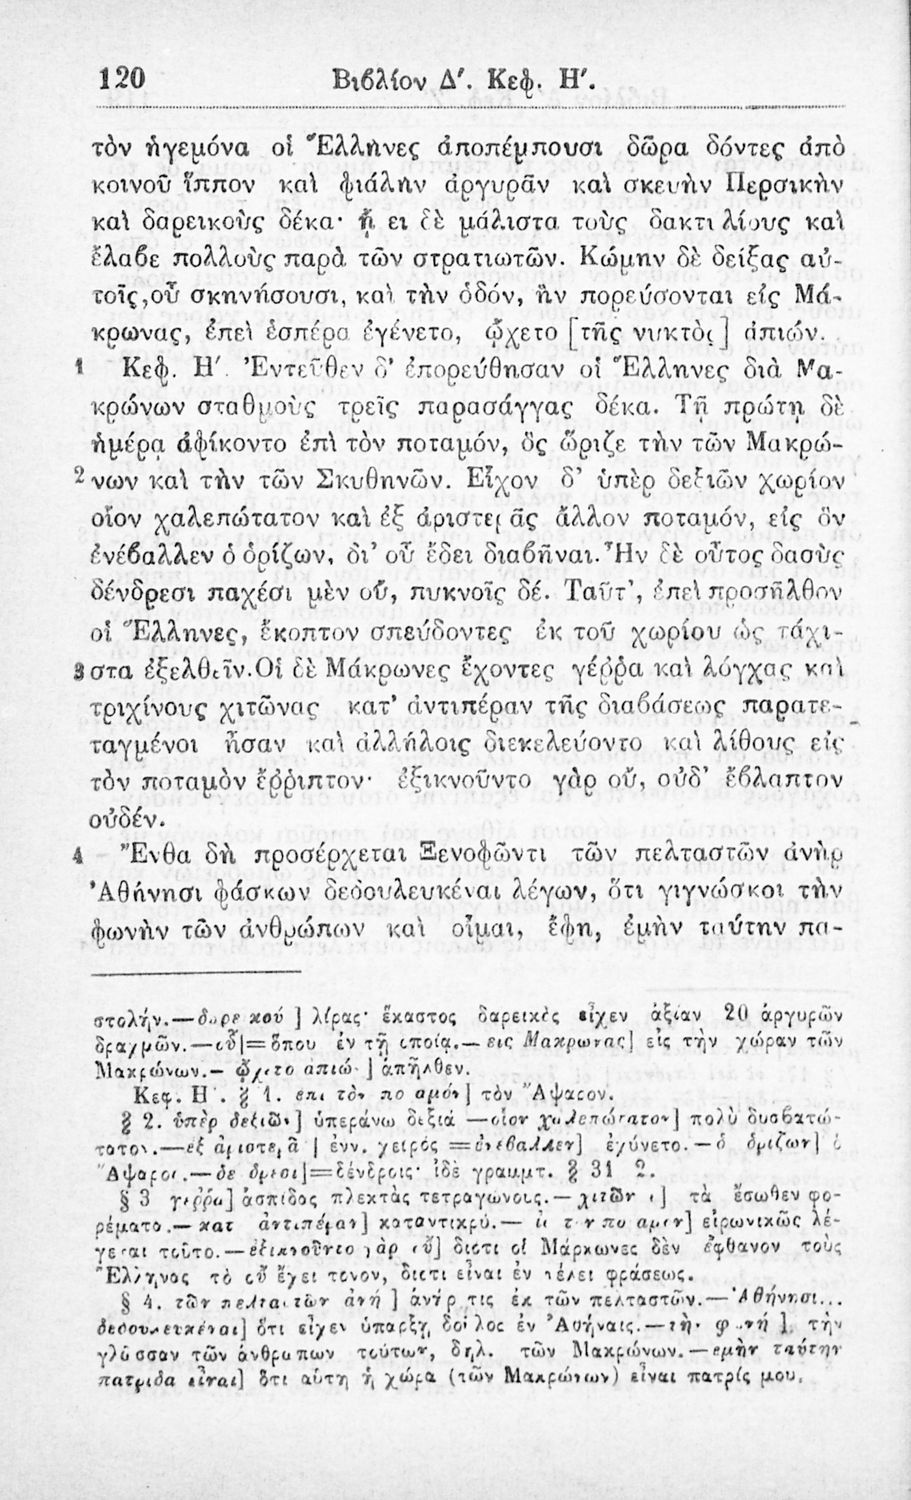 120 Βιβλίον Δ′. Κεφ. Η′.
τὸν ἡγεμόνα οἱ Ἕλληνες ἀποπέμπουσι δῶρα δόντες ἀπὸ
κοινοῦ ἵππον καὶ φιάλην ἀργυρᾶν καὶ σκευὴν Περσικὴν
καὶ δαρεικοὺς δέκα· ᾔ ει δὲ μάλιστα τοὺς δακτι λίους καὶ
ἔλαβε πολλοὺς παρὰ τῶν στρατιωτῶν. Κώμην δὲ δείξας αὐ-
τοῖς,οὗ σκηνήσουσι, καὶ τὴν ὁδόν, ἣν πορεύσονται εἰς Μά-
κρωνας, ἐπεὶ ἑσπέρα ἐγένετο, ᾤχετο [τῆς νυκτὸς] ἀπιών.
1 Κεφ. Η′. Ἐντεῦθεν δ’ ἐπορεύθησαν οἱ Ἕλληνες διὰ Μα-
κρώνων σταθμοὺς τρεῖς παρασάγγας δέκα. Τῇ πρώτῃ δὲ
ἡμέρᾳ ἀφίκοντο ἐπὶ τὸν ποταμόν, ὃς ὥριζε τὴν τῶν Μακρώ-
2 νων καὶ τὴν τῶν Σκυθηνῶν. Εἶχον δ’ ὑπὲρ δεξιῶν χωρίον
οἷον χαλεπώτατον καὶ ἐξ ἀριστερᾶς ἄλλον ποταμόν, εἰς ὃν
ἐνέβαλλεν ὁ ὁρίζων, δι’ οὗ ἔδει διαβῆναι. Ἦν δὲ οὗτος δασὺς
δένδρεσι παχέσι μὲν οὔ, πυκνοῖς δέ. Ταῦτ’, ἐπεὶ προσῆλθον
οἱ Ἕλληνες, ἔκοπτον σπεύδοντες ἐκ τοῦ χωρίου ὡς τάχι-
3 στα ἐξελθεῖν.Οἱ δὲ Μάκρωνες ἔχοντες γέῤῥα καὶ λόγχας καὶ
τριχίνους χιτῶνας κατ’ ἀντιπέραν τῆς διαβάσεως παρατε-
ταγμένοι ἦσαν καὶ ἀλλήλοις διεκελεύοντο καὶ λίθους εἰς
τὸν ποταμὸν ἔῤῥιπτον· ἐξικνοῦντο γὰρ οὔ, οὐδ’ ἔβλαπτον
οὐδέν.
4 Ἔνθα δὴ προσέρχεται Ξενοφῶντι τῶν πελταστῶν ἀνὴρ
Ἀθήνησι φάσκων δεδουλευκέναι λέγων, ὅτι γιγνώσκοι τὴν
φωνὴν τῶν ἀνθρώπων καὶ οἶμαι, ἔφη, ἐμὴν ταύτην πα-
στολήν.—δαρεικού] λίρας· ἕκαστος δαρεικὸς εἶχεν ἀξίαν 20 ἀργυρῶν
δραχμῶν.—οὗ]=ὅπου ἐν τῇ ὁποίᾳ.—εις Μακρωνας] εἰς τὴν χώραν τῶν
Μακρώνων.—ᾤχετο απιώ ] ἀπῆλθεν.
Κεφ. Η′. § 1. επι τὸν πο αμόν] τὸν Ἄψαρον.
§ 2. ὑπὲρ δεξιῶν] ὑπεράνω δεξιά —οἷον χαλεπώτατον] πολὺ δυσβατώ-
τατον.—ἐξ ἀριστερᾶ ] ἐνν. χειρός =ἐνεβαλλεν] ἐχύνετο.—ὁ ὁρίζων] ὁ
Ἄψαρος.—δε δρεσι]=δένδροις· ἰδὲ γραμμτ. § 31 2.
§ 3 γερρα] ἀσπίδας πλεκτὰς τετραγώνους.—χιτῶν ] τὰ ἔσωθεν φο-
ρέματα.—κατ ἀντιπέραν] καταντικρύ.— εἰρωνικῶς λέ-
γεται τοῦτο.—ἐξικνοῦντο γὰρ οὔ] διότι οἱ Μάρκωνες δὲν ἔφθανον τοὺς
Ἕλληνας τὸ οὔ ἔχει τόνον, διότι εἶναι ἐν τέλει φράσεως.
§ 4. τῶν πελταστῶν ἀνή ] ἀνήρ τις ἐκ τῶν πελταστῶν.—Ἀθήνησι...
δεδουλευκέναι] ὅτι εἶχεν ὑπάρξῃ δοῦλος ἐν Ἀθήναις.—τὴν φωνή ] τὴν
γλῶσσαν τῶν ἀνθρώπων τούτων, δηλ. τῶν Μακρώνων.—εμὴν ταύτην
πατρίδα εἶναι] ὅτι αὐτη ἡ χώρα (τῶν Μακρώνων) εἶναι πατρίς μου.